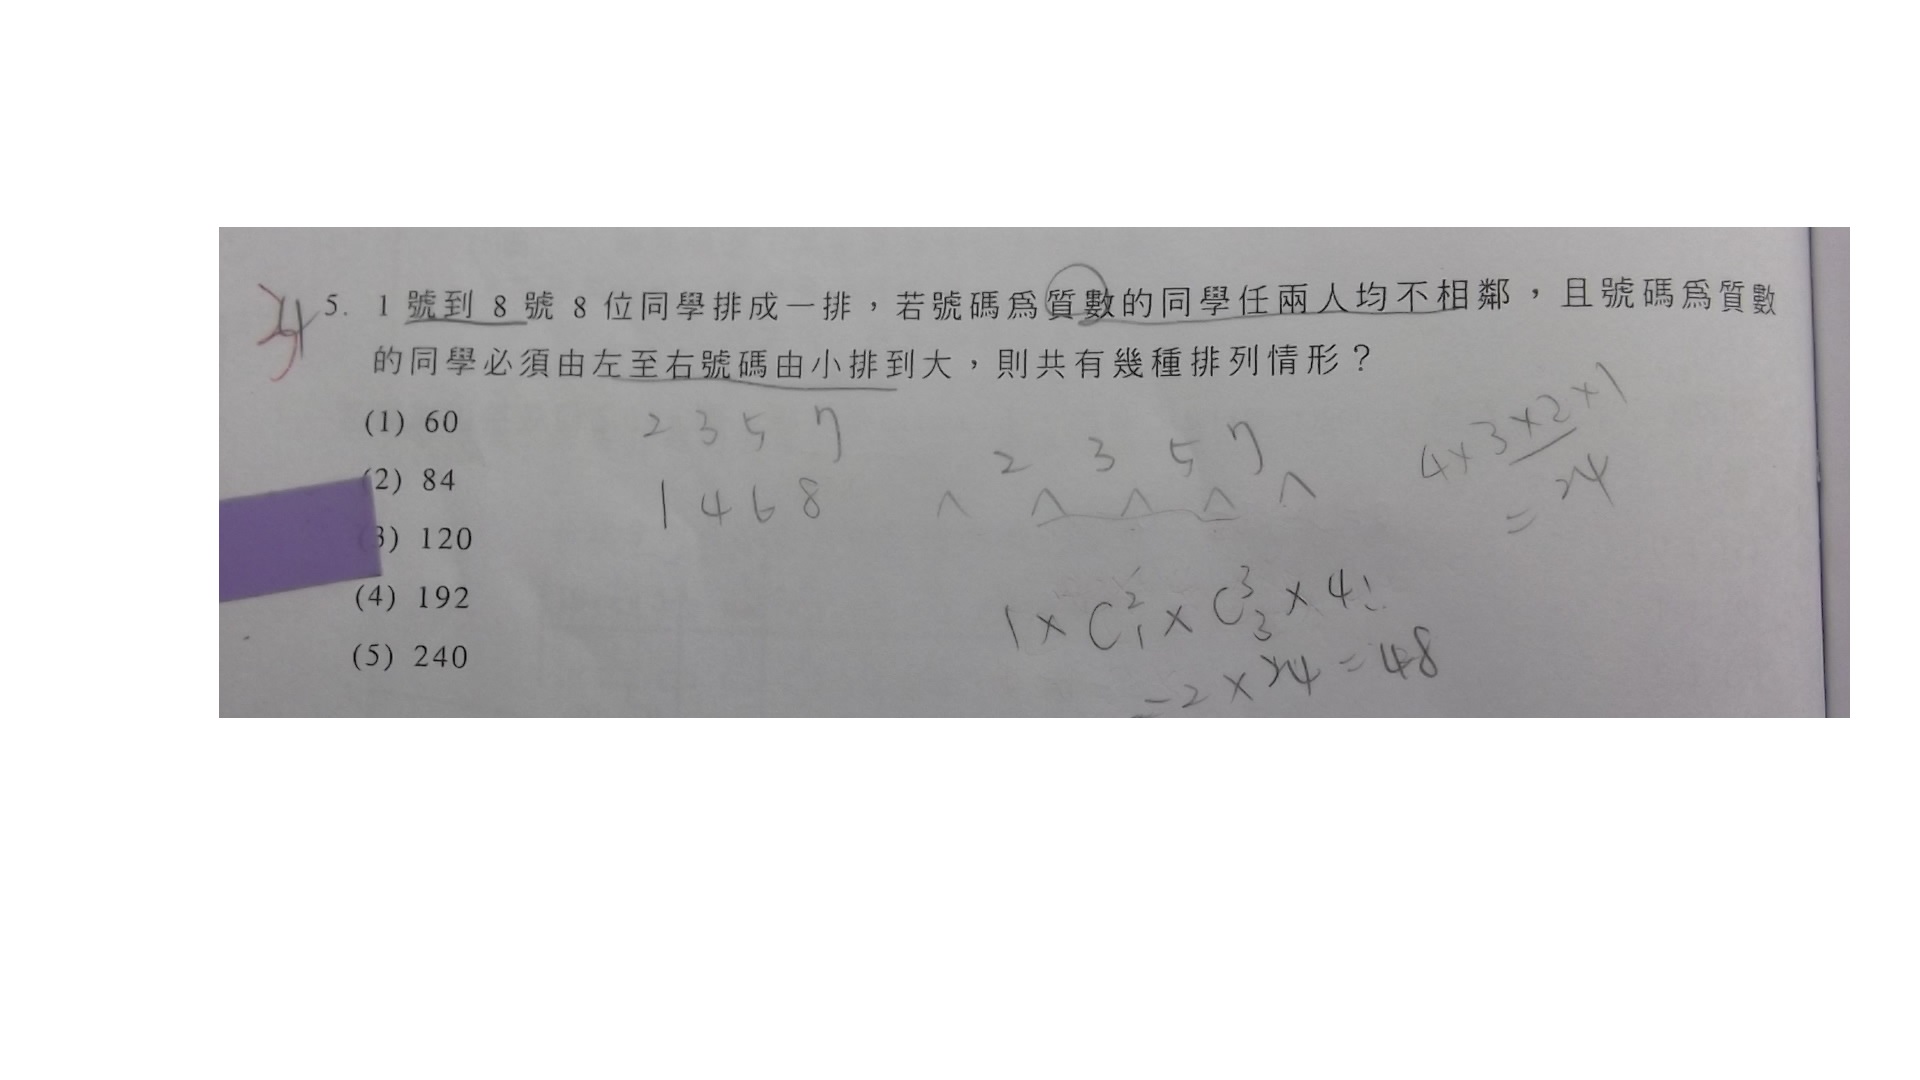 24 5. 1 號到 8 號 8 位同學排成一排，若號碼爲質數的同學任兩人均不相鄰，且號碼爲質數
的同學必須由左至右號碼由小排到大，則共有幾種排列情形？
(1) 60
(2) 84
(3) 120
(4) 192
(5) 240
2 3 5 7
1 4 6 8
2 3 5 7
^ ^ ^ ^ ^
1 × C²₁ × C³₃ × 4!
= 2 × 24 = 48
4×3×2×1
= 24